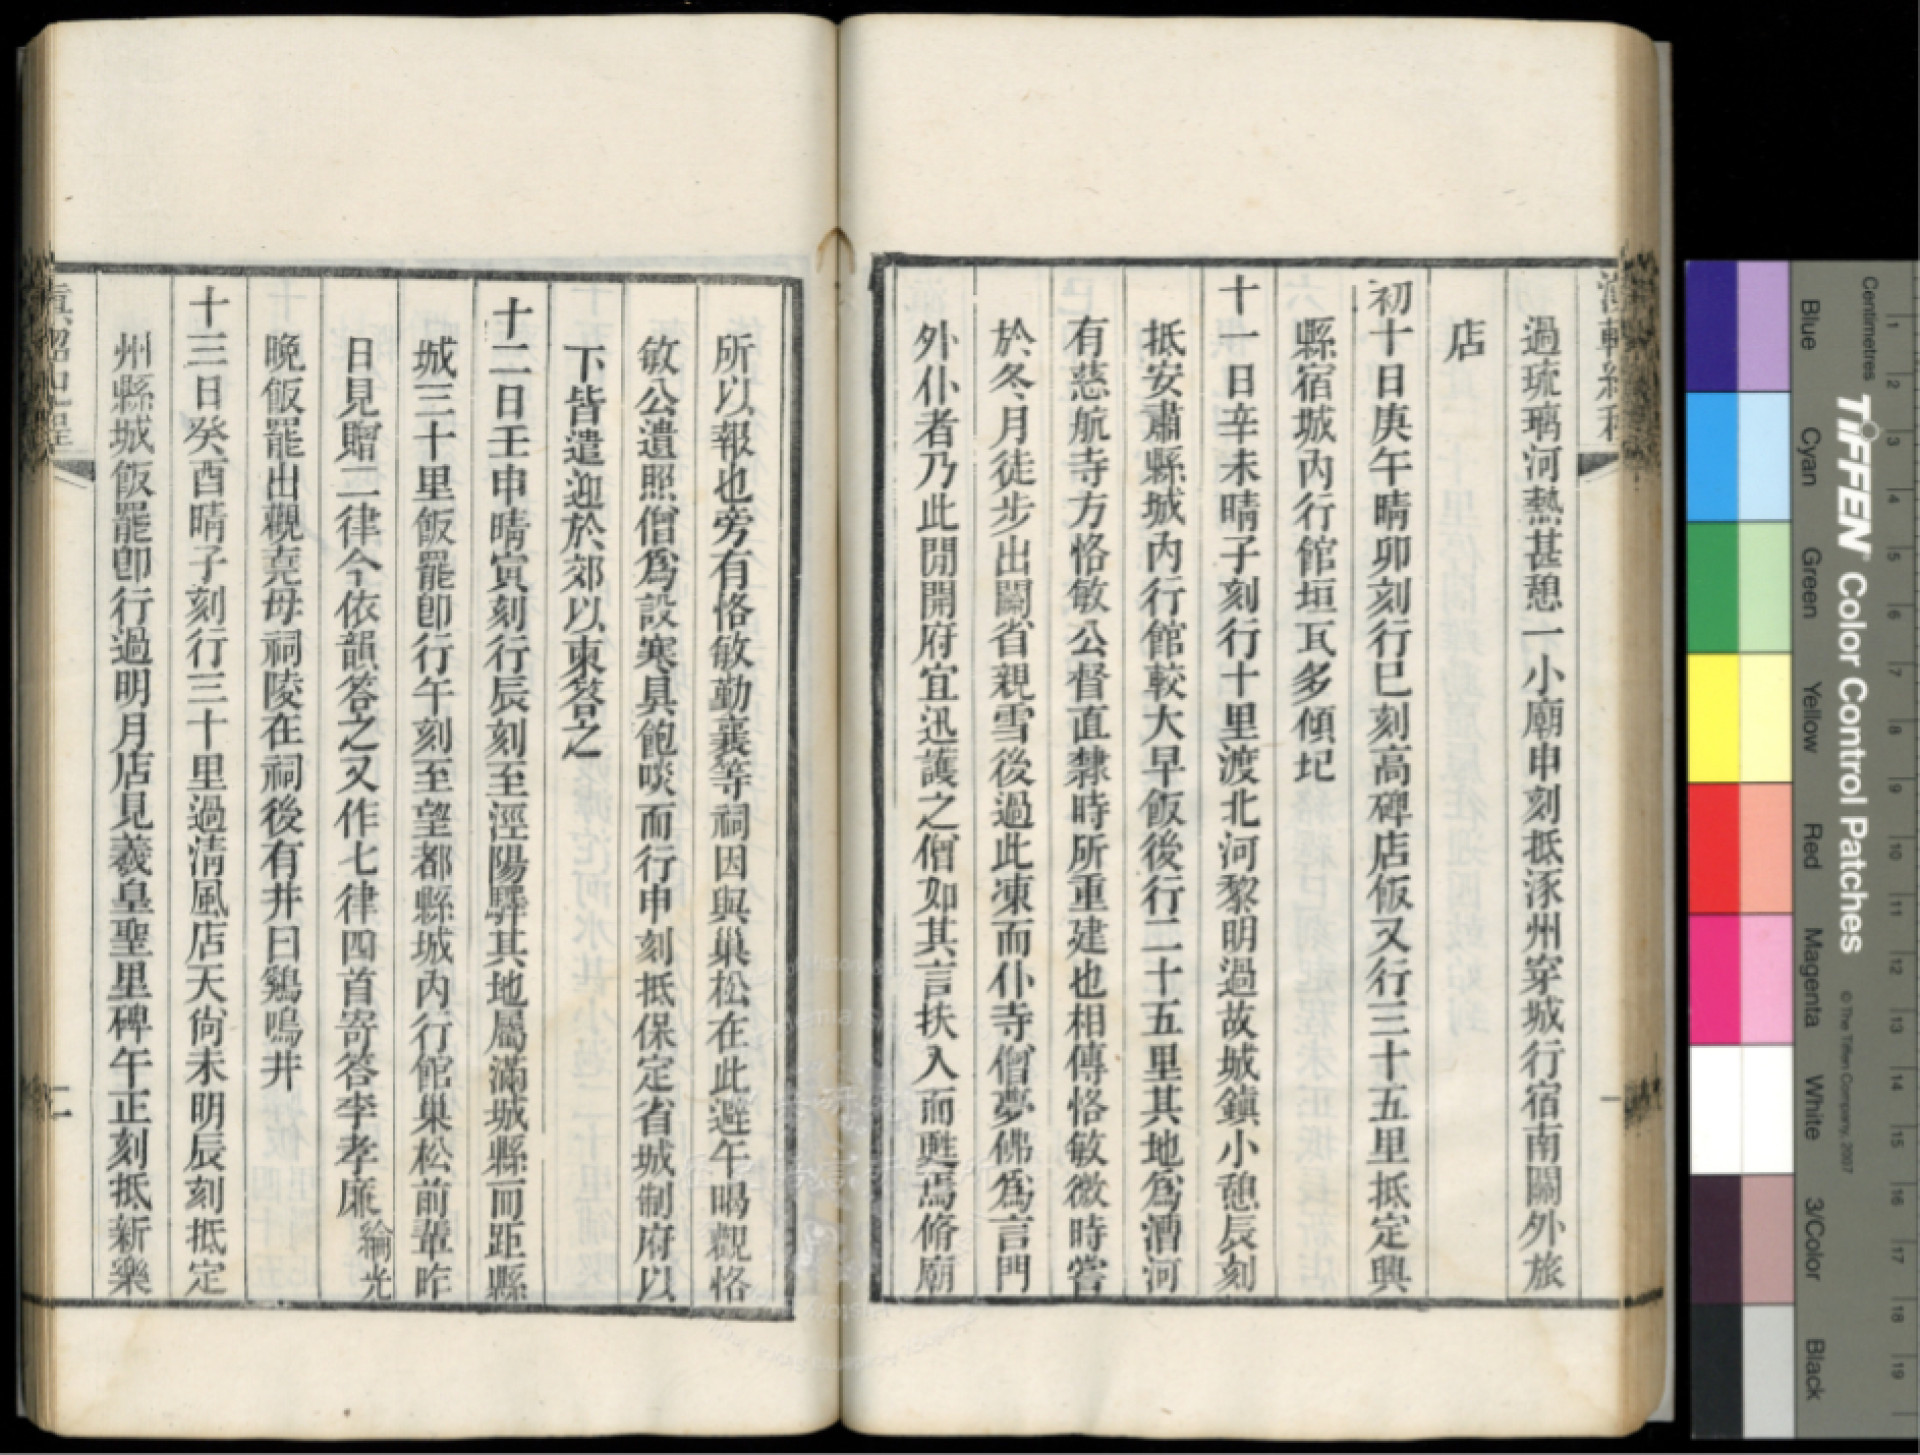 過琉璃河熱甚憩一小廟申刻抵涿州穿城行宿南關外旅
店
初十日庚午晴卯刻行巳刻高碑店飯又行三十五里抵定興
縣宿城內行館垣瓦多傾圮
十一日辛未晴子刻行十里渡北河黎明過故城鎮小憩辰刻
抵安肅縣城內行館較大早飯後行二十五里其地爲漕河
有慈航寺方恪敏公督直隸時所重建也相傳恪敏微時嘗
於冬月徒步出關省親雪後過此凍而仆寺僧夢佛爲言門
外仆者乃此閒開府宜迅護之僧如其言扶入而甦焉脩廟
所以報也旁有恪敏勤襄等祠因與巢松在此避午暍觀恪
敏公遺照僧爲設寒具飽啖而行申刻抵保定省城制府以
下皆遣迎於郊以柬答之
十二日壬申晴寅刻行辰刻至涇陽驛其地屬滿城縣而距縣
城三十里飯罷卽行午刻至望都縣城內行館巢松前輩昨
日見贈二律今依韻答之又作七律四首寄答李孝廉綸光
晚飯罷出觀堯母祠陵在祠後有井曰鷄鳴井
十三日癸酉晴子刻行三十里過清風店天尙未明辰刻抵定
州縣城飯罷卽行過明月店見羲皇聖里碑午正刻抵新樂
二
Centimetres
TIFFEN Color Control Patches
© The Tiffen Company, 2007
Blue
Cyan
Green
Yellow
Red
Magenta
White
3/Color
Black
1
2
3
4
5
6
7
8
9
10
11
12
13
14
15
16
17
18
19